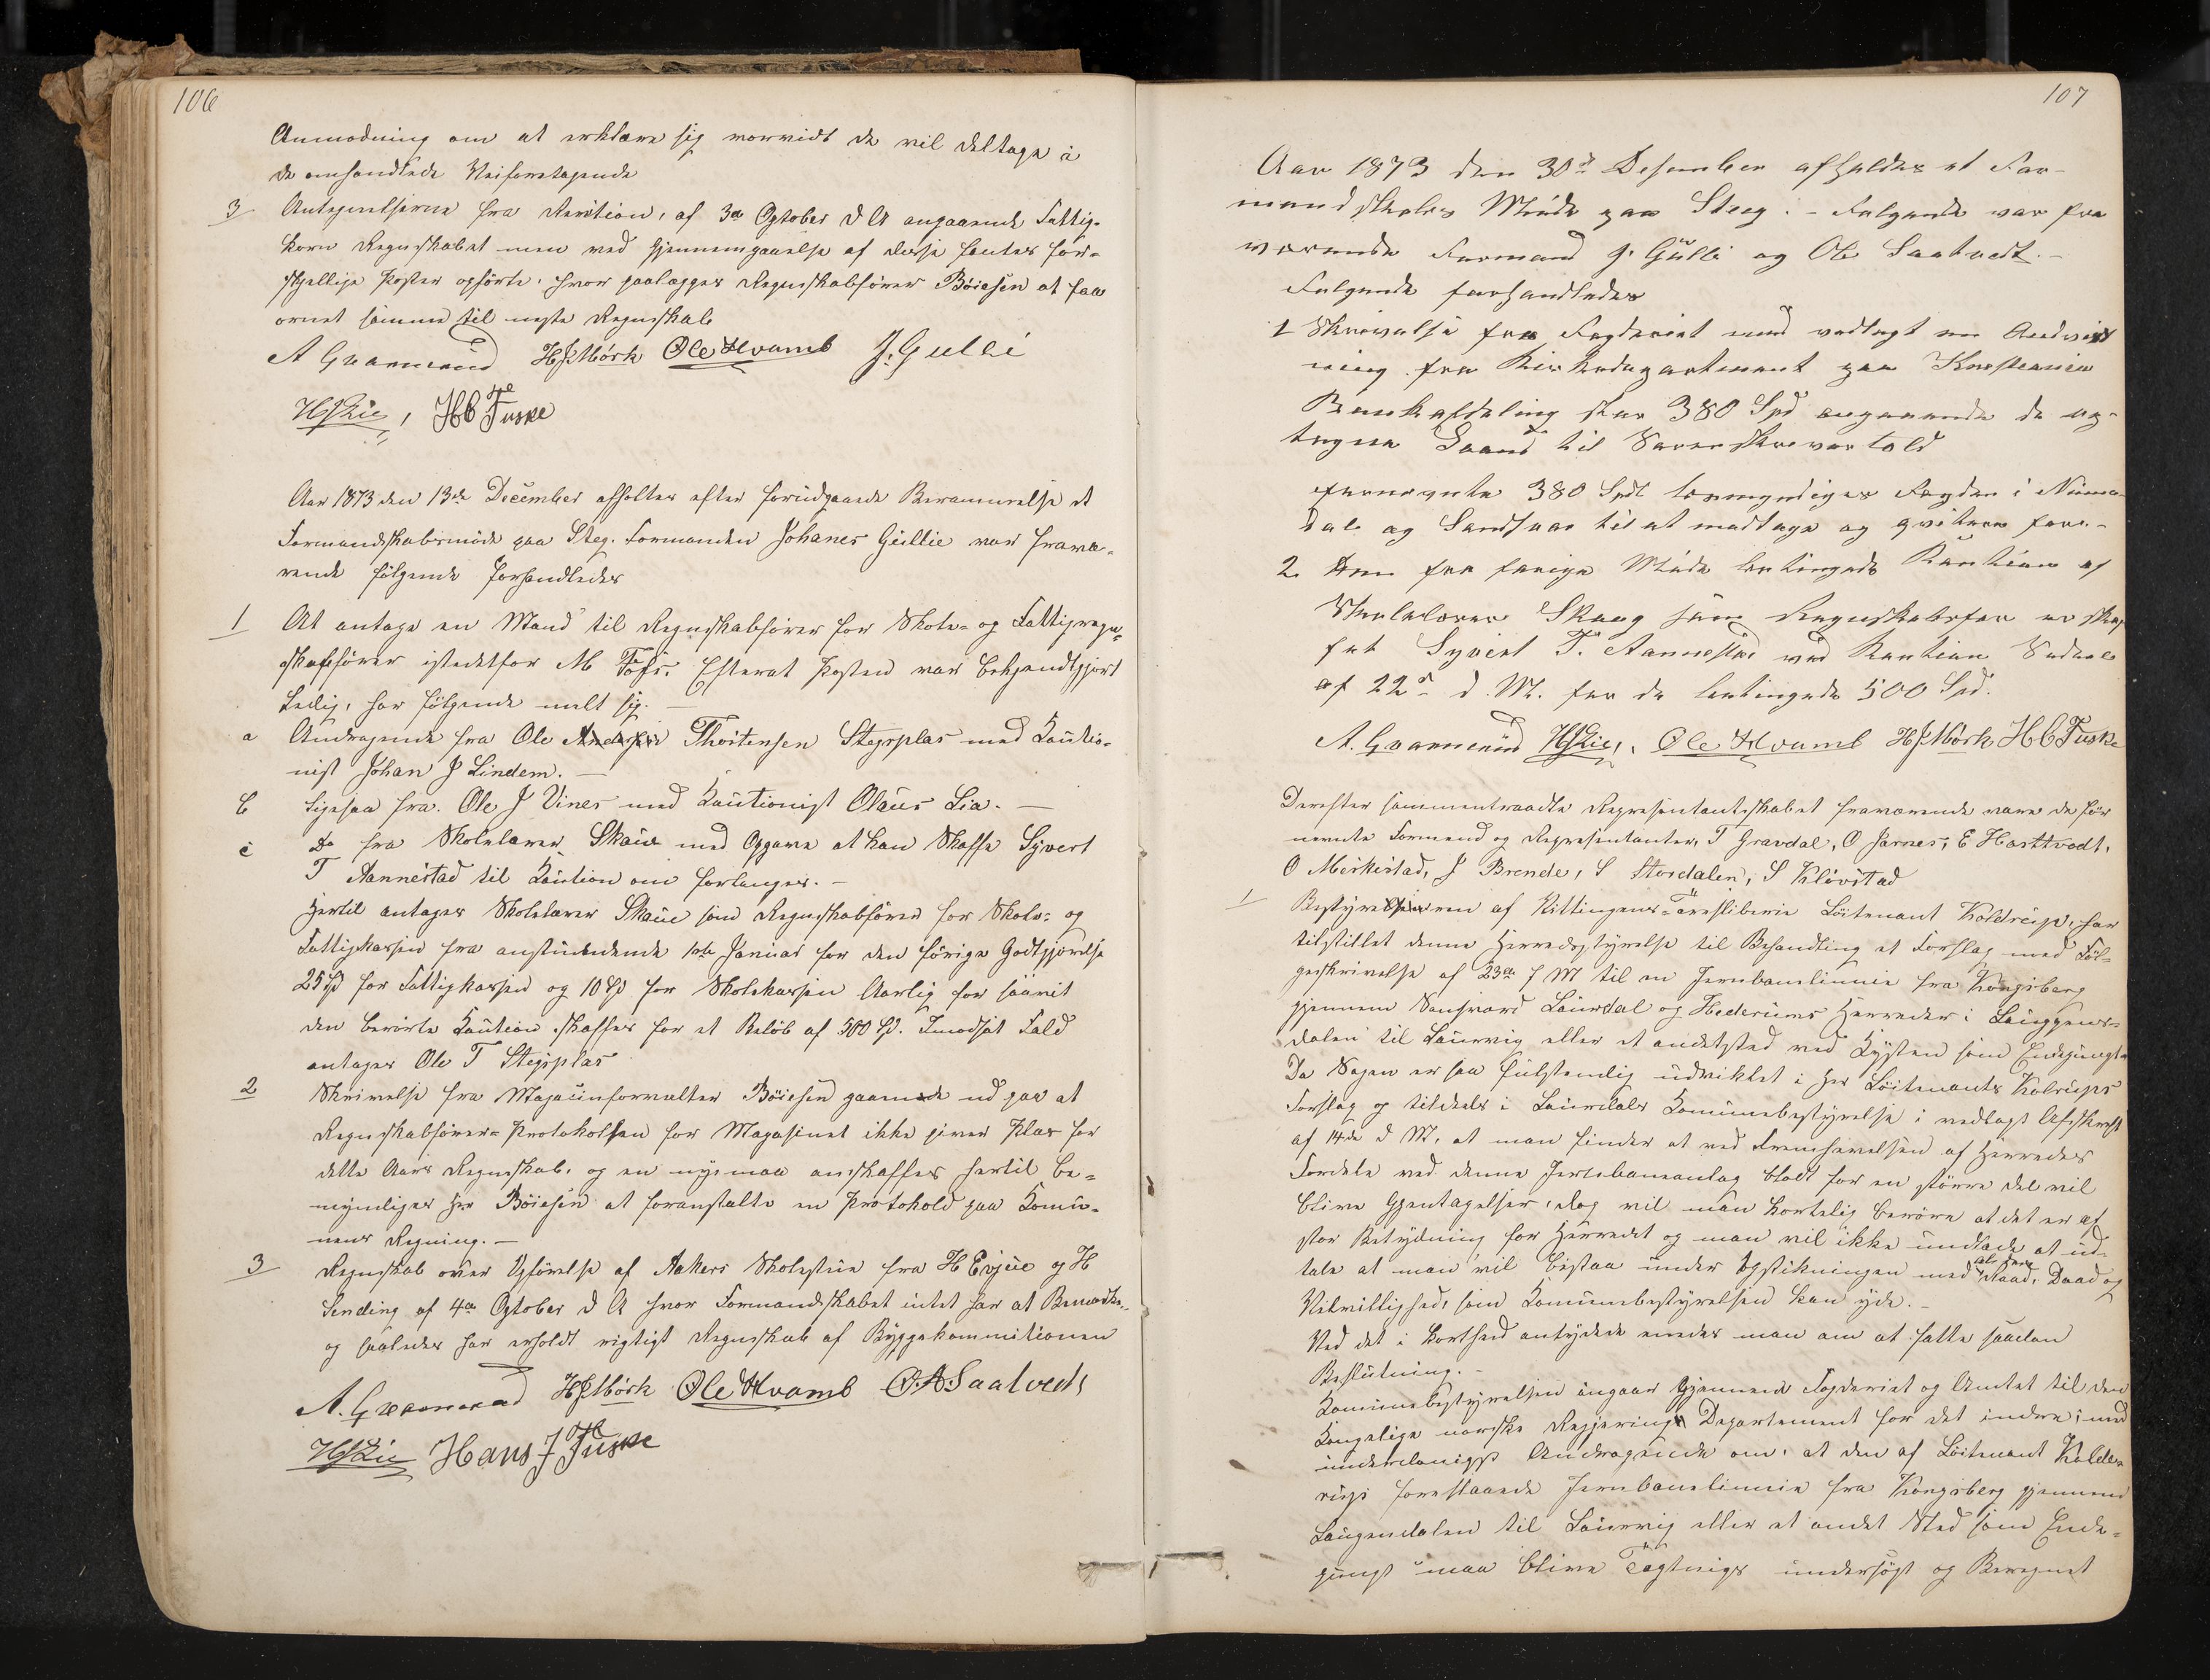 106
Anmodning om at erklære sig vorvidt de vil deltage i
de omhandlede Veiforetagende
3 Antegnelserne fra Revition, af 3die Ogtober d A angaaende Fattig-
korn Regnskabet men ved Gjennemgaaelse af disse fantes for-
skjellige Poster opförte, hvor paalægges Regnskabsförer Böiesen at faa
ornet samme til neste Regnskab
A Gvammend HJMörk Ole Hvamb J. Gulli
HJLie, HC Fuske
Aar 1873 den 13de December afholtes efter forudgaaende Berammelse et
Formandskabsmöde paa Steg. Formanden Johanes Gullie var fravæ-
rende följgende forhandledes
1 At antage en Mand til Regnskabsförer for Skole- og Fattigregn-
skabsförer istedetfor M Fofs. Efterat Posten var bekjendtgjort
ledig, har fölgende melt sig. —
a Andragende fra Ole Andersen Thortensen Stegsplas med Kautio-
nist Johan J Lindem. —
b Ligesaa fra. Ole J Vines med Kautionist Olaus Lia. —
c Do fra Skolelærer Skaue med Opgave at han Skaffe Syvert
T Aannestad til Kaution om forlanges. —
Hertil antages Skolelærer Skaue som Regnskabsförer for Skole- og
Fattigkassen fra anstundende 1ste Januar for den förige Godtgjörelse
25 Spd for Fattigkassen og 10 Spd for Skolekassen Aarlig for saavit
den berörte Kaution skaffes for et Belöb af 500 Spd. Imodsat Fald
antages Ole T Stegsplas
2 Skrivelse fra Magasinforvalter Böiesen gaaende ud paa at
Regnskabsförer-Protokollen for Magasinet ikke giver Plas for
dette Aars Regnskab, og en ny maa anskaffes hertil be-
myndiges Hr Böiesen at foranstalte en Protokold paa Komu-
nens Regning. —
3 Regnskab over Opförelse af Aakers Skolestue fra H Evjue og H
Sending af 4de Ogtober d A hvor Formandskabet intet har at Bemærke,
og saaledes har erholdt rigtigt Regnskab af Byggekommitionen
A. Gvammend HJMörk Ole Hvamb O.A. Saatvedt
HJLie Hans J Fuske
107
Aar 1873 den 30te Desember afholdes et For-
mandskabs Möde paa Steeg. - Følgende var fra
værende Formand J. Gulli og Ole Saatvedt. -
Følgende forhandledes
1 Skrivelse fra Fogderiet med vedlagt en Andvist
ning fra Kirkedepartement paa Kristiania
Bankafdeling stor 380 Spd angaaende de op-
tagne Laans til Sorenskrevertold
fornævnte 380 Spd bemyndiges Fogden i Numme-
dal og Sandsvær til at modtage og qvitere fore. -
2. Den fra forige Möde betingede Kaution af
Skolelærer Skaug som Regnskabsfør er skaf
fet Syvert T. Aannestad ved Kaution Sedel
af 22de d. M. for de betingede 500 Spd.
A. Gvammend HJLie, Ole Hvamb HJMörk HCFuske
Derefter sammentraadte Representantskabet fraværende vare de för
nevnte Formend og Representanter, T Gravdal, O Jarnes, E Hosttvedt,
O Meikestad, J Brende, S Stordalen, S Klövstad
1 Bestyreren af Kittingens-Træsliberie Löitenant Koldrup, har
tilstillet denne Herredsstyrelse til Behandling et Forslag med Föl-
geskrivelse af 23de f M til en Jernbanelinnie fra Kongsberg
gjennem Sansvær Laurdal og Hederums Herreder i Lauggens-
dalen til Laurvig eller et andetsted ved Kysten som Endepungt.
Da Sagen er saa fulstendig udviklet i Hr Löitenants Kolrups
Forslag og tildels i Laurdals Komunebestyrelse i vedlagt Afskrift
af 14de d M, at man finder at ved Fremhævelsen af Herredes
Fordele ved denne Jernbaneanlæg blodt for en större del vil
blive Gjentagelser, dog vil man kortelig beröre at det er af
stor Betydning for Herredet og man vil ikke undlade at ud-
tale at man vil bistaa under Opstikningen med Raad, Daad og
Velvillighed, som Komunebestyrelsen kan yde. -
Ved det i korthed antydede enedes man om at fatte saadan
Beslutning. -
Komunebestyrelsen ingaar Gjennem Fogderiet og Amtet til den
Kongelige norske Regjerings Departement for det indre, med
underdanigst Andragende om, at den af Löitenant Kolde-
rups forestaaende Jernbanelinnie fra Kongsberg gjennem
Laugendalen til Laurvig eller et andet Sted som Ende-
pungt maa blive Tegtnigs undersögt og Beregnet